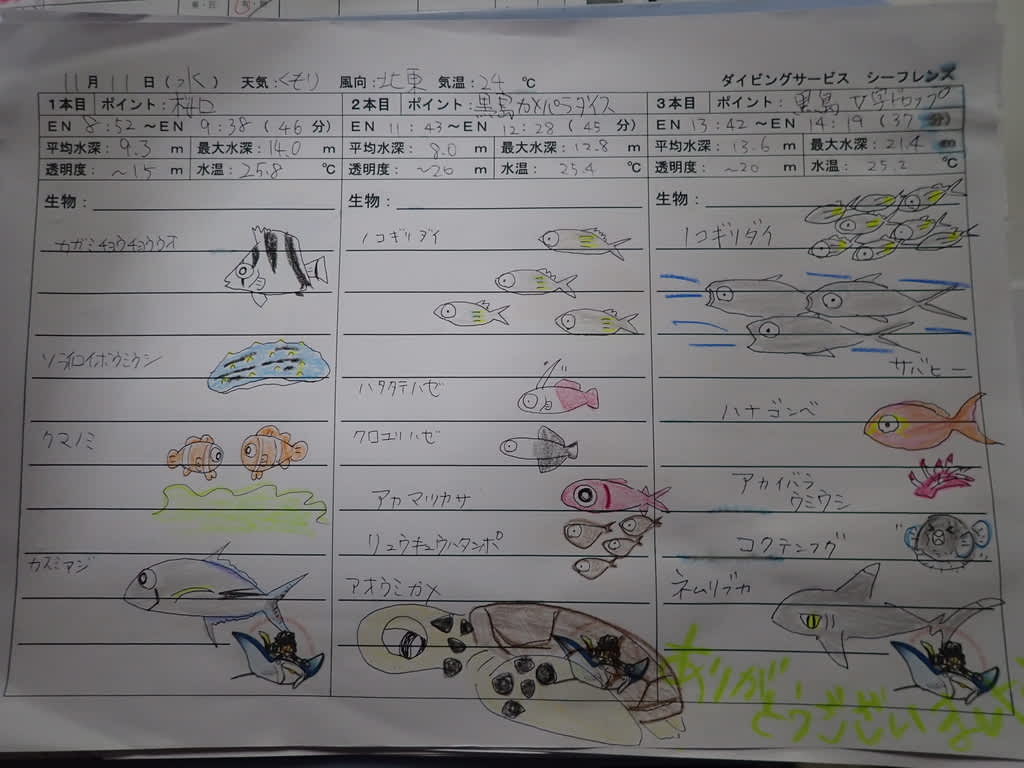 11月11日(水) 天気:くもり 風向:北東 気温:24℃ ダイビングサービス シーフレンズ
1本目 ポイント:村口
EN 8:52 ～EN 9:38 (46分)
平均水深: 9.3 m 最大水深: 14.0 m
透明度: ～15 m 水温: 25.8 ℃
生物:
カガミチョウチョウウオ
ソライロイボウミウシ
クマノミ
カスミアジ
2本目 ポイント:黒島カメパラダイス
EN 11:43 ～EN 12:28 (45分)
平均水深: 8.0 m 最大水深: 12.8 m
透明度: ～20 m 水温: 25.4 ℃
生物:
ノコギリダイ
ハタタテハゼ
クロユリハゼ
アカマツカサ
リュウキュウハタンポ
アオウミガメ
3本目 ポイント:黒島 V字ドロップ
EN 13:42 ～EN 14:19 (37分)
平均水深: 13.6 m 最大水深: 21.4 m
透明度: ～20 m 水温: 25.2 ℃
生物:
ノコギリダイ
サバヒー
ハナゴンベ
アカイバラ
ウミウシ
コクテンフグ
ネムリブカ
ありが
とうございます